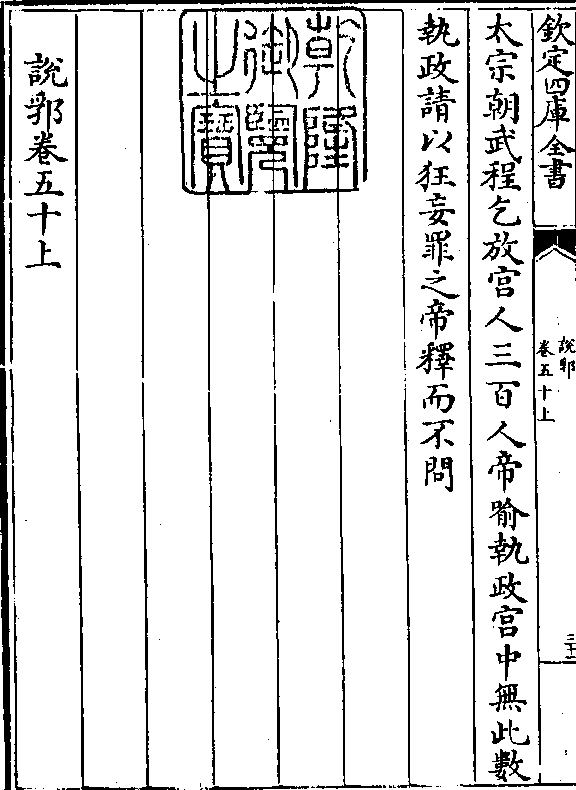 欽定四庫全書
說郛
卷五十上
三十一
太宗朝武程乞放宫人三百人帝喻執政宫中無此數
執政請以狂妄罪之帝釋而不問
乾隆御覽之寶
說郛卷五十上